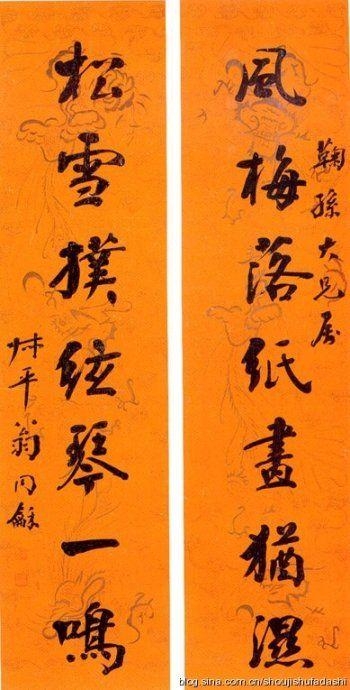 鞠孫大兄屬
風梅落紙畫猶濕
松雪撲弦琴一鳴
叔平翁同龢
blog.sina.com.cn/shoujishufadashi